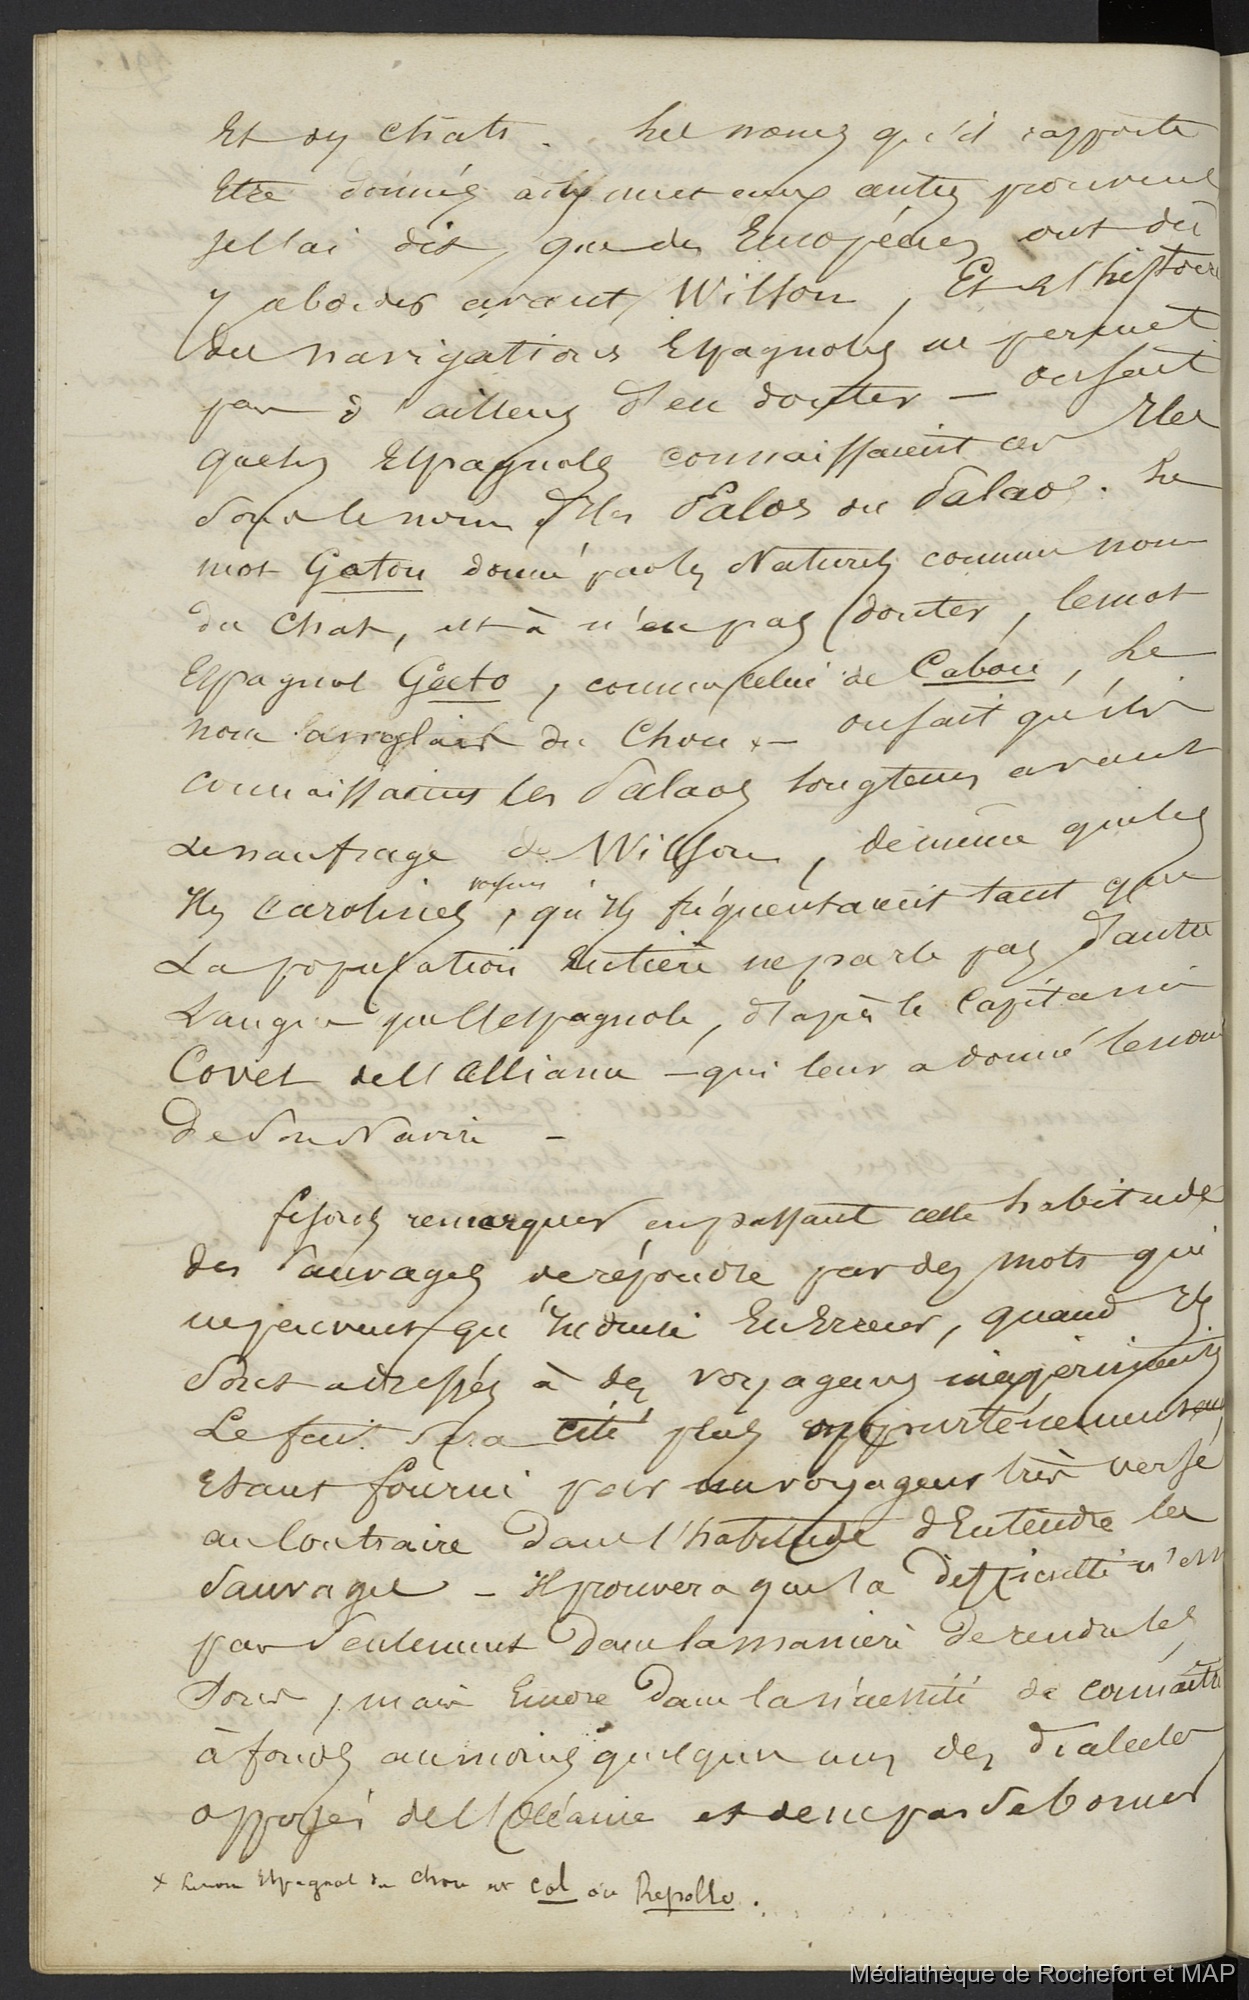 Et des chats. Les noms qu'il rapporte
Etre donnés aux uns et aux autres prouvent
je l'ai dit, que des Européens ont dû
y aborder avant Wilson, Et l'histoire
des navigations Espagnoles ne permet
pas d'ailleurs d'en douter — on sait
que les Espagnols connaissaient ces Iles
sous le nom d'Iles Palos ou Palaos. Le
mot Gaton donné par les Naturels comme nom
du Chat, est à n'en pas douter, le mot
Espagnol Gato, comme celui de Cabou, Le
nom anglais du Chou × — on sait qu'ils
connaissaient les Palaos longtems avant
Le naufrage de Wilson, de même que les
Iles Carolines voisines, qu'ils fréquentaient tant que
La population Entière ne parle pas d'autre
Langue que l'espagnole, d'après le Capitaine
Covet de l'Alliance — qui leur a donné le nom
De Son Navire —
fesons remarquer en passant cette habitude
des Sauvages de répondre par des mots qui
ne peuvent qu'induire En Erreur, quand Ils
Sont adressés à des voyageurs inexpérimentés
Le fait sera cité plus
Etant fourni par un voyageur très versé
au Contraire Dans l'habitude d'Entendre les
Sauvages — Il prouvera que la difficulté n'est
pas Seulement Dans la manière De rendre les
Sons, mais Encore Dans la nécessité de connaître
à fonds au moins quelques uns des Dialectes
opposés de l'Océanie et de ne pas Se borner
× Le nom Espagnol du chou est Col ou Repollo.
Médiathèque de Rochefort et MAP